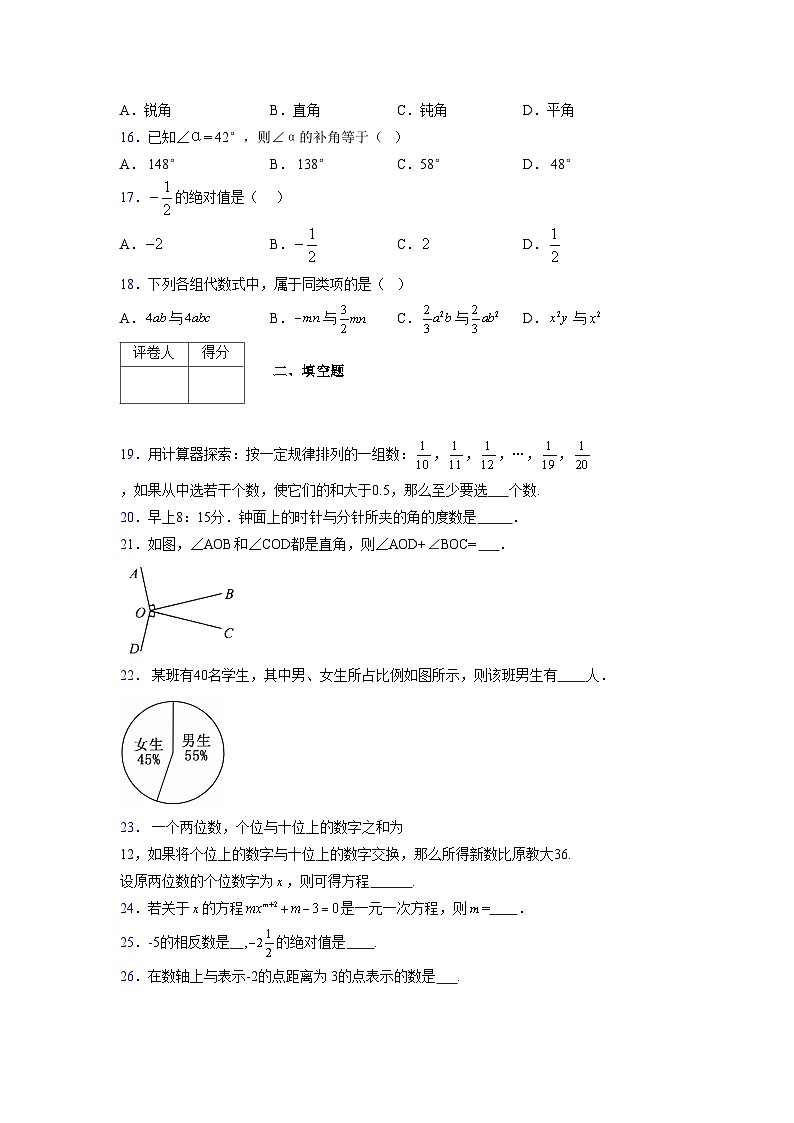 A．锐角 B．直角 C．钝角 D．平角
16．已知∠α=42°，则∠α的补角等于（ ）
A．148° B．138° C．58° D．48°
17．−1/2的绝对值是（ ）
A．−2 B．−1/2 C．2 D．1/2
18．下列各组代数式中，属于同类项的是（ ）
A．4ab与4abc B．−mn与3/2mn C．2/3a²b与2/3ab² D．x²y与x²
评卷人 得分
二、填空题
19．用计算器探索：按一定规律排列的一组数：1/10，1/11，1/12，…，1/19，1/20
，如果从中选若干个数，使它们的和大于0.5，那么至少要选___个数.
20．早上8：15分．钟面上的时针与分针所夹的角的度数是_____．
21．如图，∠AOB和∠COD都是直角，则∠AOD+∠BOC=___．
A
B
O
C
D
22． 某班有40名学生，其中男、女生所占比例如图所示，则该班男生有____人．
女生 男生
45% 55%
23． 一个两位数，个位与十位上的数字之和为
12，如果将个位上的数字与十位上的数字交换，那么所得新数比原教大36.
设原两位数的个位数字为x，则可得方程______.
24．若关于x的方程mxᵐ⁺²+m−3=0是一元一次方程，则m=____．
25．-5的相反数是__,−2 1/2的绝对值是____.
26．在数轴上与表示-2的点距离为3的点表示的数是___.